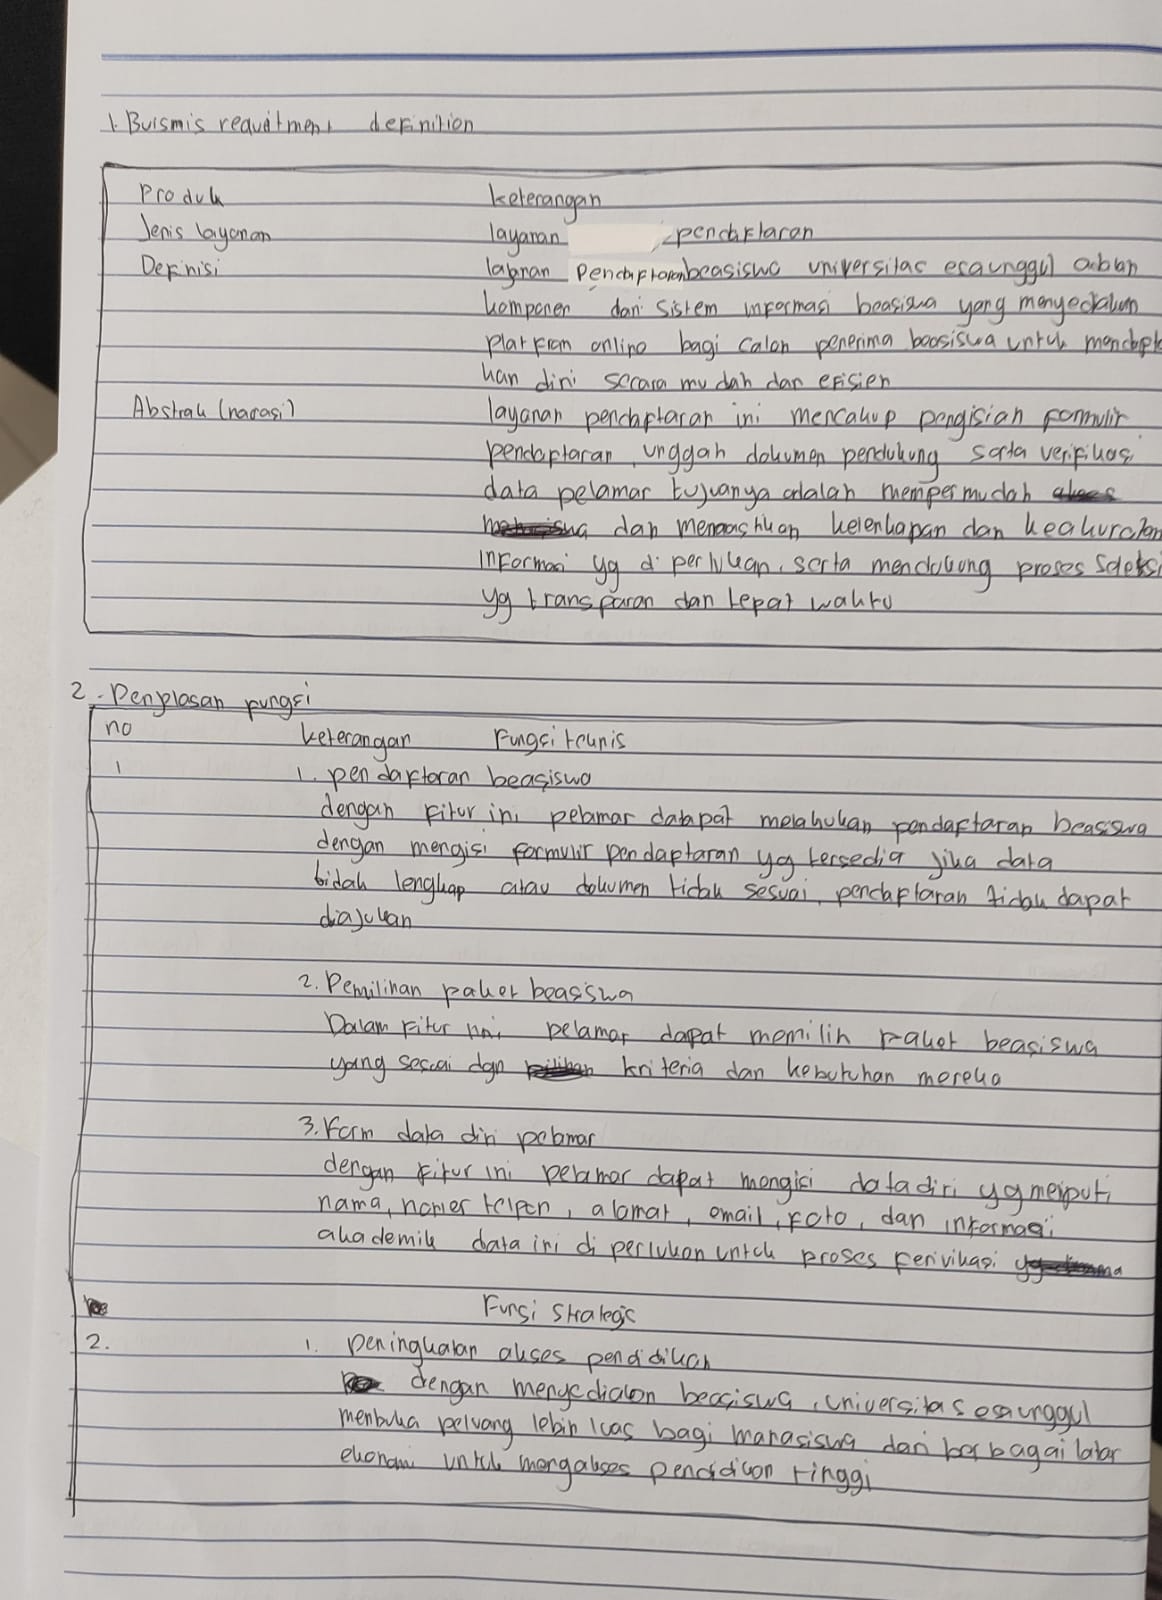 1. Buismis requitment definition
Produk keterangan
Jenis layanan layanan pendaftaran
Definisi layanan Pendaftaran beasiswa universitas esaunggul adalah
komponen dari sistem informasi beasiswa yang menyediakan
platfram online bagi calon penerima beasiswa untuk mendaft
kan diri secara mudah dan efisien
Abstrak (narasi) layanan pendaftaran ini mencakup pengisian formulir
pendaftaran, unggah dokumen pendukung serta verifikasi
data pelamar tujuanya adalah mempermudah
dan memastikan kelenkapan dan keakuratan
informasi yg di perlukan, serta mendukung proses seleksi
yg transparan dan tepat waktu
2. Penjelasan fungsi
no keterangan Fungsi teknis
1 1. pendaftaran beasiswa
dengan fitur ini pelamar datapat melakukan pendaftaran beasiswa
dengan mengisi formulir pendaftaran yg tersedia jika data
tidak lengkap atau dokumen tidak sesuai, pendaftaran tidak dapat
diajukan
2. Pemilihan paket beasiswa
Dalam fitur ini pelamar dapat memilih paket beasiswa
yang sesuai dgn kriteria dan kebutuhan mereka
3. Form data diri pelamar
dengan fitur ini pelamar dapat mengisi data diri yg meliputi
nama, nomer telpon, alamat, email, foto, dan informasi
akademik data ini di perlukan untuk proses ferivikasi
Fungsi Strategis
2. 1. peningkatan akses pendidikan
dengan menyediakan beasiswa, universitas esaunggul
membuka peluang lebih luas bagi mahasiswa dari berbagai latar
ekonomi untuk mengakses pendidikan tinggi